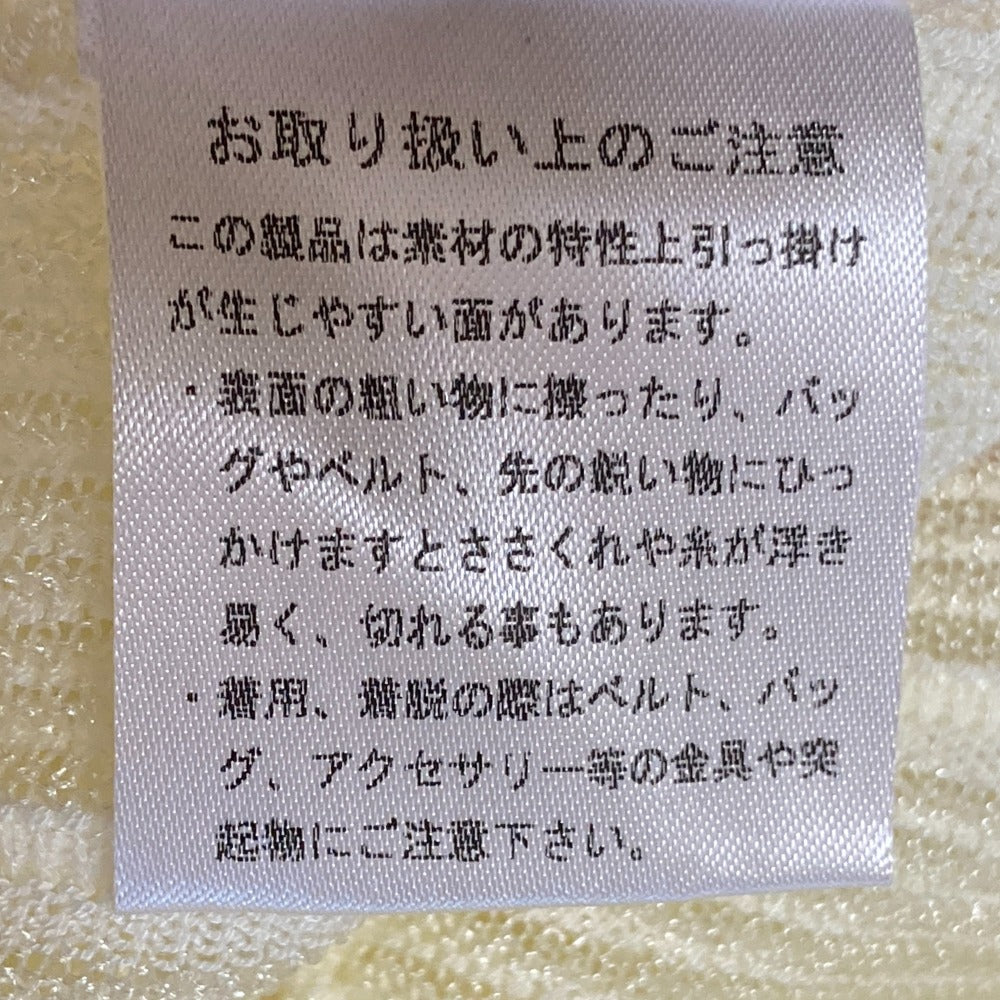 お取り扱い上のご注意
この製品は素材の特性上引っ掛け
が生じやすい面があります。
・表面の粗い物に擦ったり、バッ
グやベルト、先の鋭い物にひっ
かけますとささくれや糸が浮き
易く、切れる事もあります。
・着用、着脱の際はベルト、バッ
グ、アクセサリー等の金具や突
起物にご注意下さい。